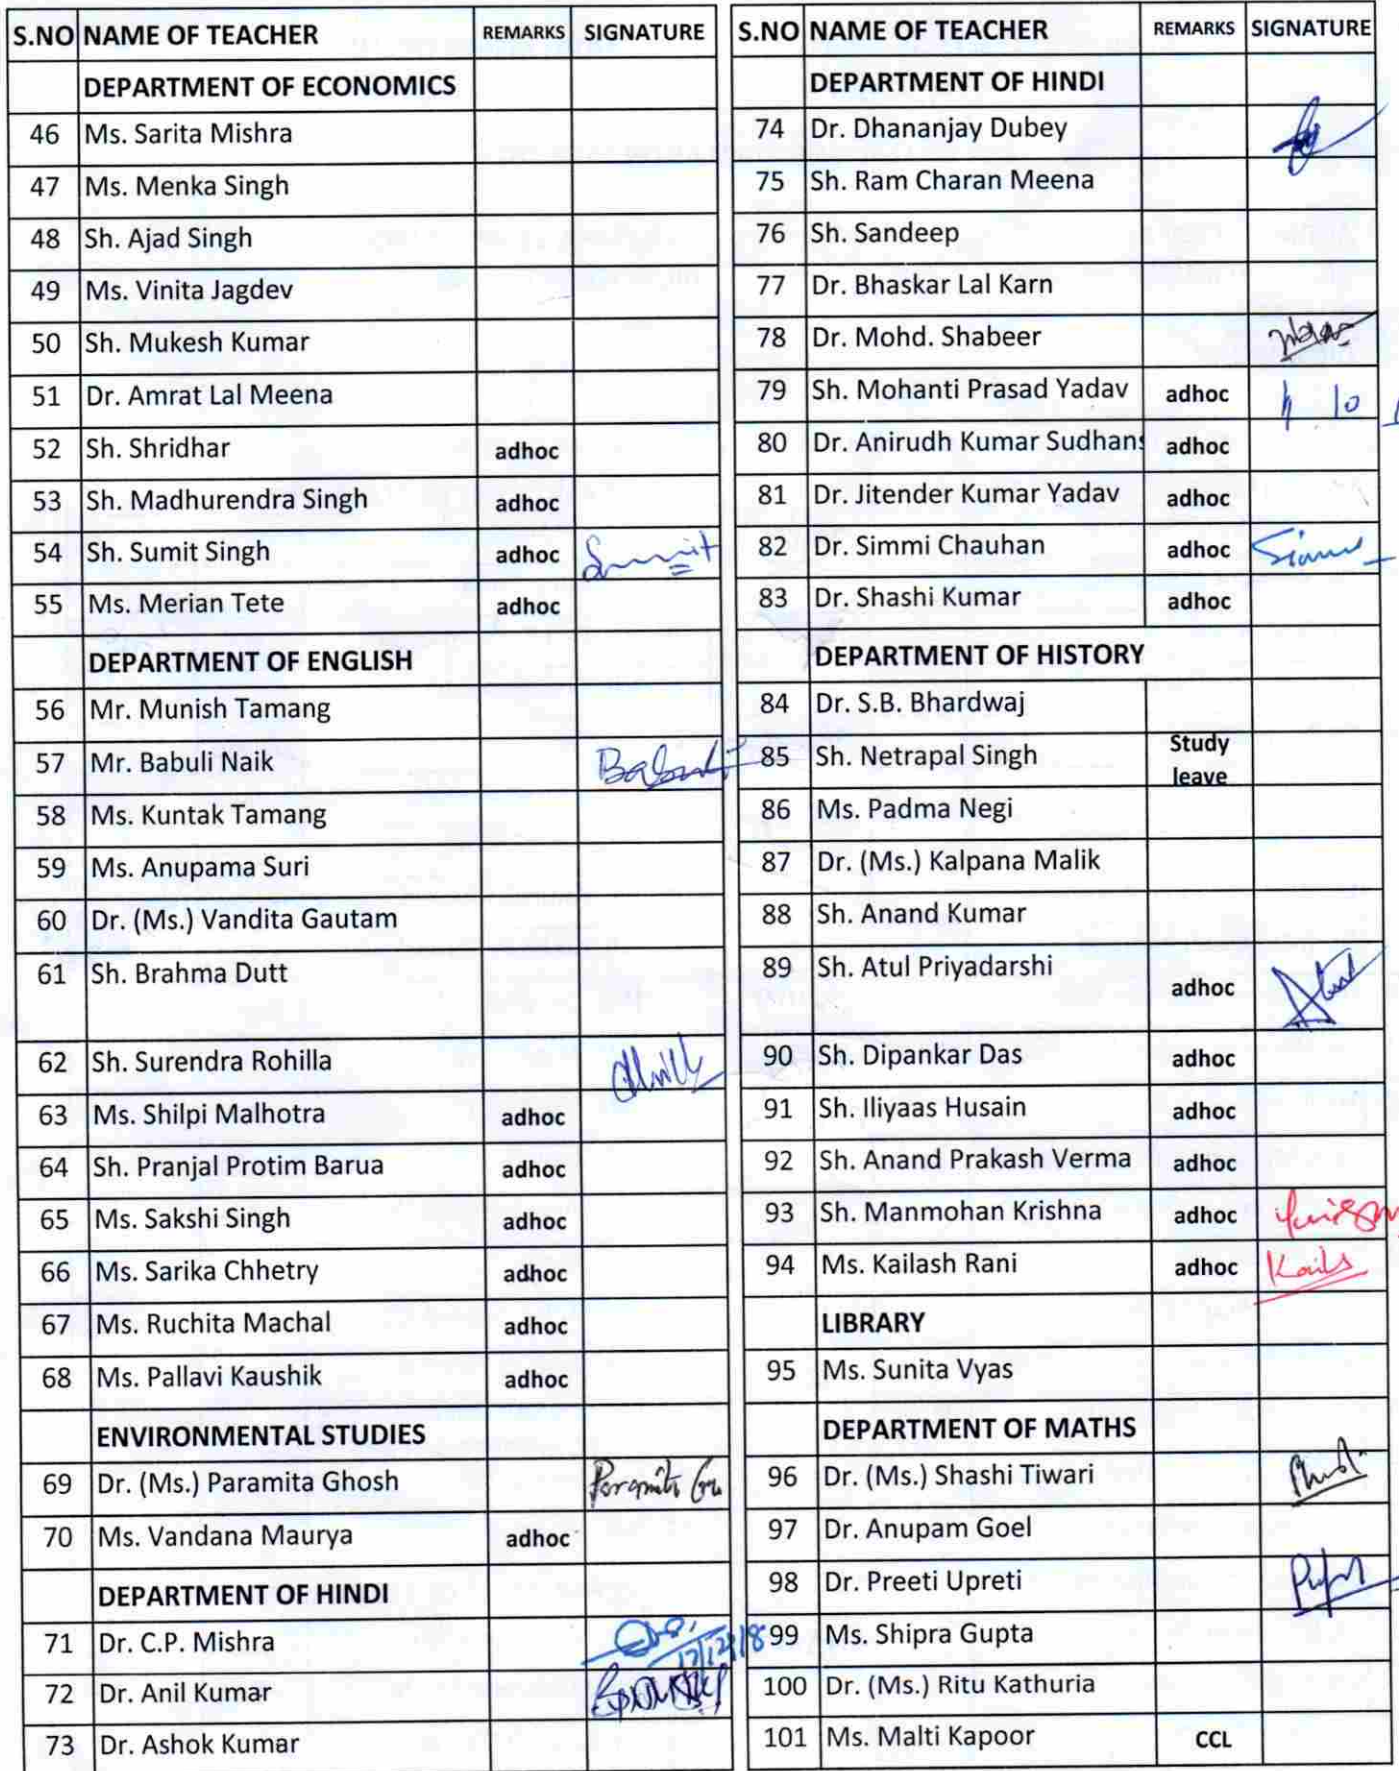 S.NO NAME OF TEACHER REMARKS SIGNATURE
DEPARTMENT OF ECONOMICS
46 Ms. Sarita Mishra
47 Ms. Menka Singh
48 Sh. Ajad Singh
49 Ms. Vinita Jagdev
50 Sh. Mukesh Kumar
51 Dr. Amrat Lal Meena
52 Sh. Shridhar adhoc
53 Sh. Madhurendra Singh adhoc
54 Sh. Sumit Singh adhoc Sumit
55 Ms. Merian Tete adhoc
DEPARTMENT OF ENGLISH
56 Mr. Munish Tamang
57 Mr. Babuli Naik
58 Ms. Kuntak Tamang
59 Ms. Anupama Suri
60 Dr. (Ms.) Vandita Gautam
61 Sh. Brahma Dutt
62 Sh. Surendra Rohilla
63 Ms. Shilpi Malhotra adhoc
64 Sh. Pranjal Protim Barua adhoc
65 Ms. Sakshi Singh adhoc
66 Ms. Sarika Chhetry adhoc
67 Ms. Ruchita Machal adhoc
68 Ms. Pallavi Kaushik adhoc
ENVIRONMENTAL STUDIES
69 Dr. (Ms.) Paramita Ghosh Paramita
70 Ms. Vandana Maurya adhoc
DEPARTMENT OF HINDI
71 Dr. C.P. Mishra 17/12/18
72 Dr. Anil Kumar
73 Dr. Ashok Kumar
S.NO NAME OF TEACHER REMARKS SIGNATURE
DEPARTMENT OF HINDI
74 Dr. Dhananjay Dubey
75 Sh. Ram Charan Meena
76 Sh. Sandeep
77 Dr. Bhaskar Lal Karn
78 Dr. Mohd. Shabeer
79 Sh. Mohanti Prasad Yadav adhoc
80 Dr. Anirudh Kumar Sudhans adhoc
81 Dr. Jitender Kumar Yadav adhoc
82 Dr. Simmi Chauhan adhoc
83 Dr. Shashi Kumar adhoc
DEPARTMENT OF HISTORY
84 Dr. S.B. Bhardwaj
85 Sh. Netrapal Singh Study leave
86 Ms. Padma Negi
87 Dr. (Ms.) Kalpana Malik
88 Sh. Anand Kumar
89 Sh. Atul Priyadarshi adhoc
90 Sh. Dipankar Das adhoc
91 Sh. Iliyaas Husain adhoc
92 Sh. Anand Prakash Verma adhoc
93 Sh. Manmohan Krishna adhoc
94 Ms. Kailash Rani adhoc
LIBRARY
95 Ms. Sunita Vyas
DEPARTMENT OF MATHS
96 Dr. (Ms.) Shashi Tiwari
97 Dr. Anupam Goel
98 Dr. Preeti Upreti
99 Ms. Shipra Gupta
100 Dr. (Ms.) Ritu Kathuria
101 Ms. Malti Kapoor CCL